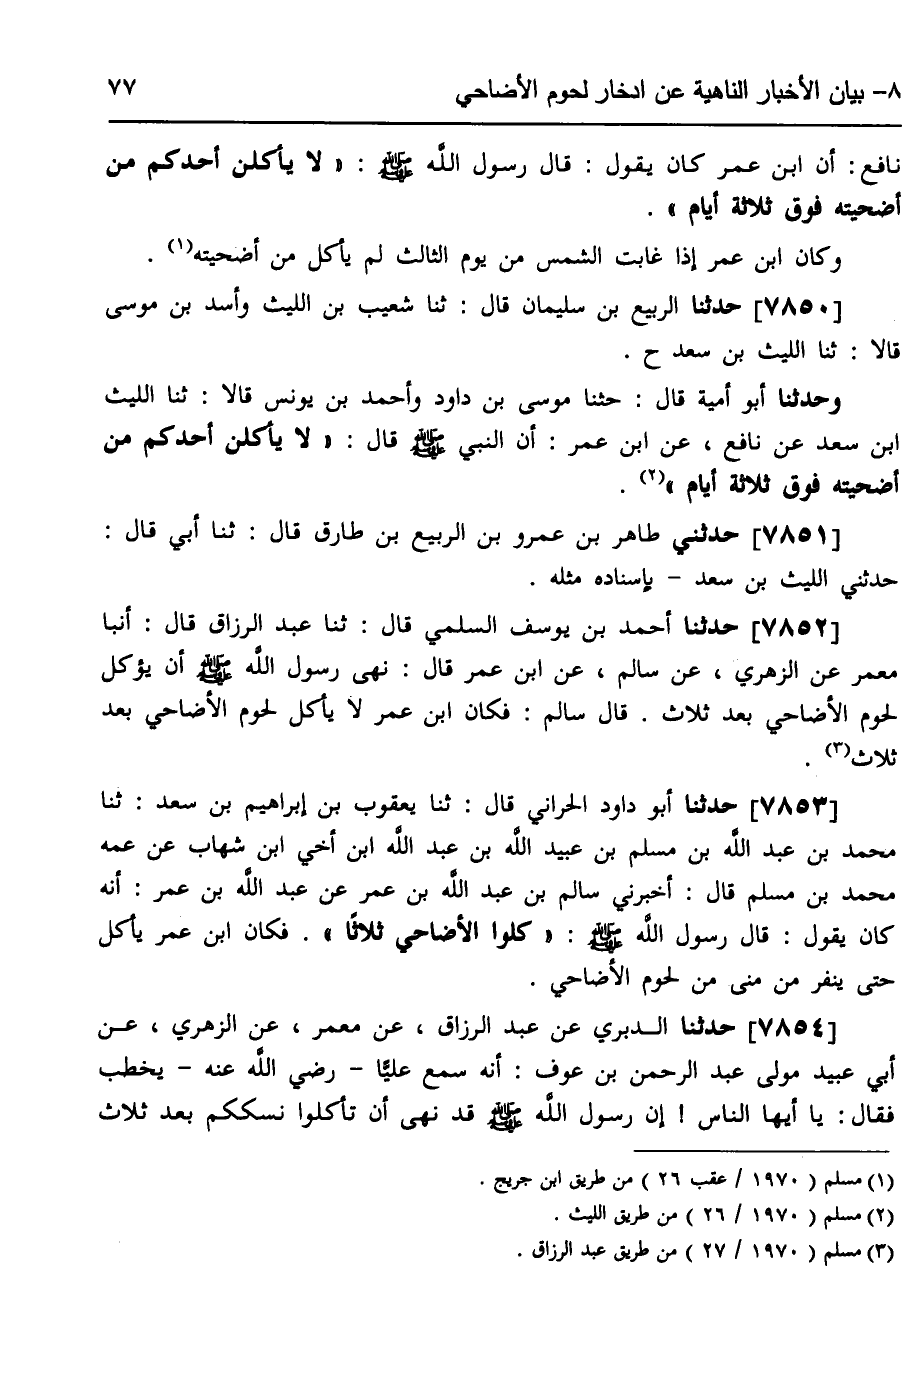 ٨- بيان الأخبار الناهية عن ادخار لحوم الأضاحي ٧٧
نافع : أن ابن عمر كان يقول : قال رسول اللَّه ﷺ : « لا يأكلن أحدكم من
أضحيته فوق ثلاثة أيام » .
وكان ابن عمر إذا غابت الشمس من يوم الثالث لم يأكل من أضحيته(١) .
[٧٨٥٠] حدثنا الربيع بن سليمان قال : ثنا شعيب بن الليث وأسد بن موسى
قالا : ثنا الليث بن سعد ح .
وحدثنا أبو أمية قال : حثنا موسى بن داود وأحمد بن يونس قالا : ثنا الليث
ابن سعد عن نافع ، عن ابن عمر : أن النبي ﷺ قال : « لا يأكلن أحدكم من
أضحيته فوق ثلاثة أيام »(٢) .
[٧٨٥١] حدثني طاهر بن عمرو بن الربيع بن طارق قال : ثنا أبي قال :
حدثني الليث بن سعد - بإسناده مثله .
[٧٨٥٢] حدثنا أحمد بن يوسف السلمي قال : ثنا عبد الرزاق قال : أنبا
معمر عن الزهري ، عن سالم ، عن ابن عمر قال : نهى رسول اللَّه ﷺ أن يؤكل
لحوم الأضاحي بعد ثلاث . قال سالم : فكان ابن عمر لا يأكل لحوم الأضاحي بعد
ثلاث(٣) .
[٧٨٥٣] حدثنا أبو داود الحراني قال : ثنا يعقوب بن إبراهيم بن سعد : ثنا
محمد بن عبد اللَّه بن مسلم بن عبيد اللَّه بن عبد اللَّه ابن أخي ابن شهاب عن عمه
محمد بن مسلم قال : أخبرني سالم بن عبد اللَّه بن عمر عن عبد اللَّه بن عمر : أنه
كان يقول : قال رسول اللَّه ﷺ : « كلوا الأضاحي ثلاثًا » . فكان ابن عمر يأكل
حتى ينفر من منى من لحوم الأضاحي .
[٧٨٥٤] حدثنا الـدبري عن عبد الرزاق ، عن معمر ، عن الزهري ، عـن
أبي عبيد مولى عبد الرحمن بن عوف : أنه سمع عليًّا - رضي اللَّه عنه - يخطب
فقال : يا أيها الناس ! إن رسول اللَّه ﷺ قد نهى أن تأكلوا نسككم بعد ثلاث
(١) مسلم ( ١٩٧٠ / عقب ٢٦ ) من طريق ابن جريج .
(٢) مسلم ( ١٩٧٠ / ٢٦ ) من طريق الليث .
(٣) مسلم ( ١٩٧٠ / ٢٧ ) من طريق عبد الرزاق .